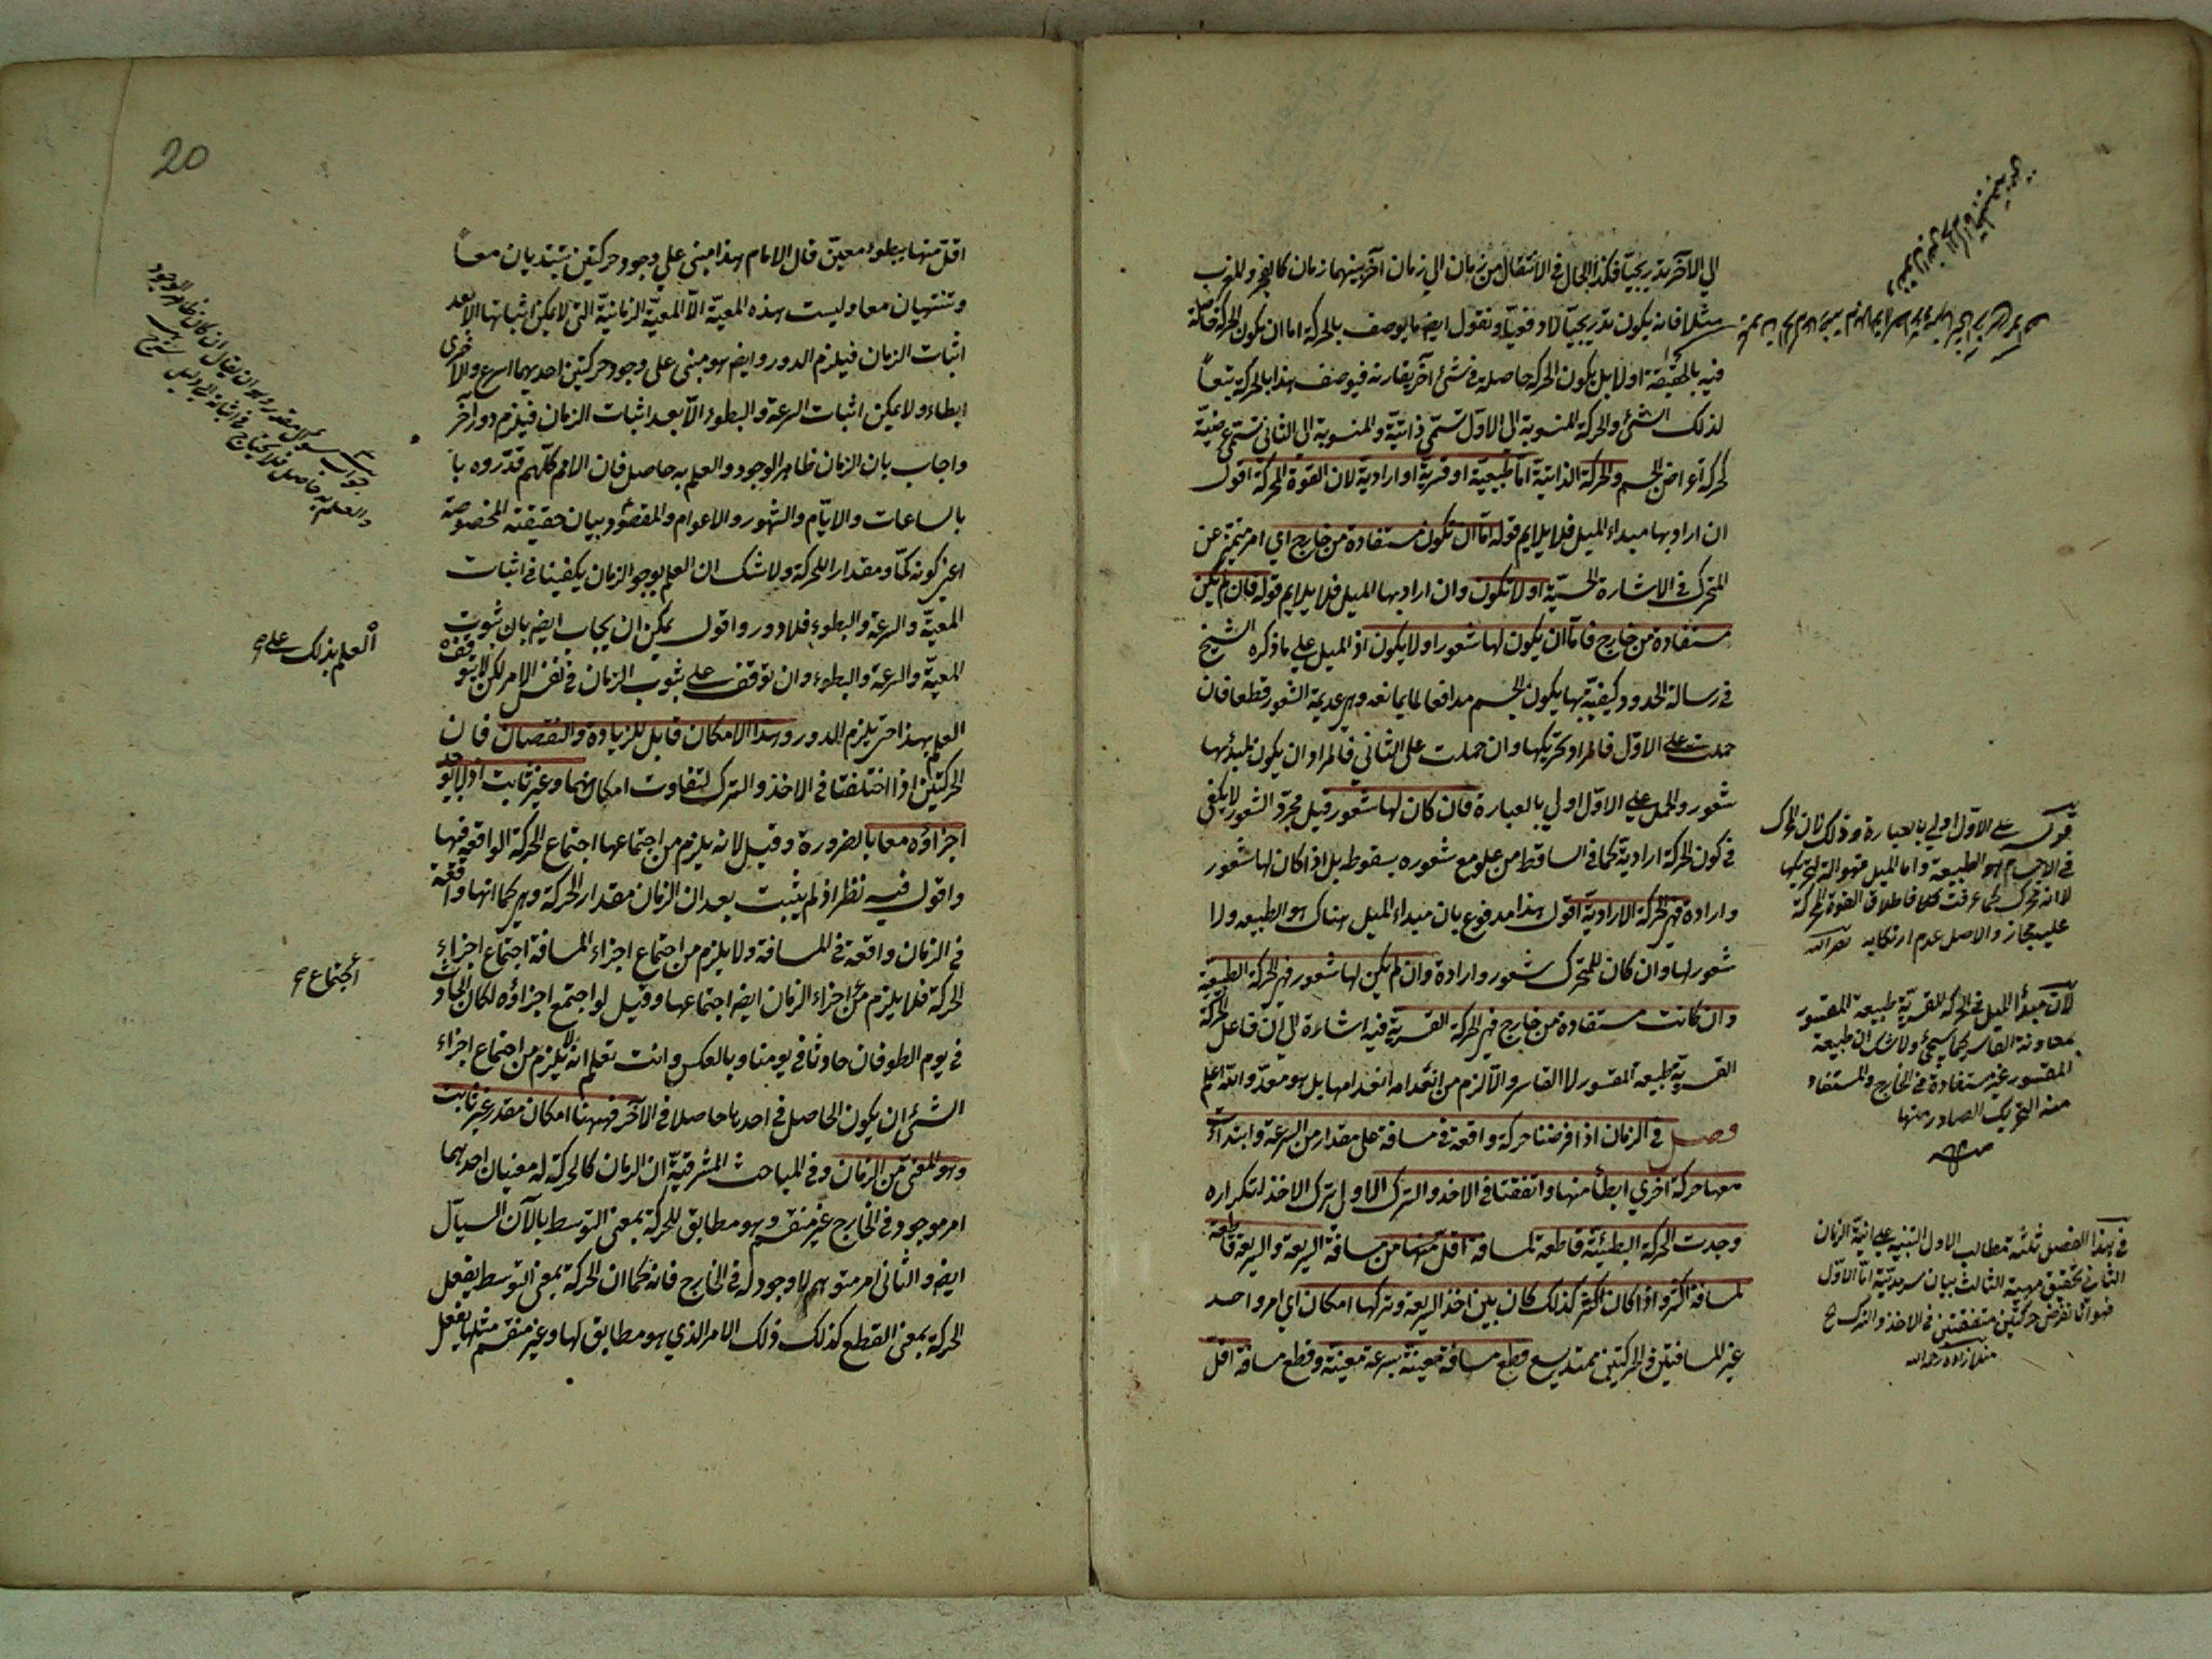 الي الآخر تدريجيا فكذا الحال في الانتقال من زمان الي زمان آخر بينهما زمان كالفجر والمغرب
مثلا فانه يكون تدريجيا لا دفعيا ونقول ايضا ما يوصف بالحركة اما ان يكون الحركة حاصلة
فيه بالحقيقة او لا بل يكون الحركة حاصلة في شئ آخر يقارنه فيوصف هذا بالحركة تبعا
لذلك الشئ والحركة المنسوبة الى الاول تسمى ذاتية والمنسوبة الي الثاني تسمى عرضية
كحركة اعراض الجسم والحركة الذاتية اما طبيعية او قسرية او ارادية لان القوة المحركة اقول
ان اراد بها مبداء الميل فلا يلايم قوله اما ان تكون مستفادة من خارج اي امر متميز عن
المتحرك في الاشارة الحسية او لا تكون وان اراد بها الميل فلا يلايم قوله فان لم يكن
مستفادة من خارج فاما ان يكون لها شعور او لا يكون اذ الميل علي ما ذكره الشيخ
في رسالة الحدود كيفية بها يكون الجسم مدافعا لما يمانعه وهي عديمة الشعور قطعا فان
حملت على الاول فالمراد تحريكها وان حملت على الثاني فالمراد ان يكون لمبدئها
شعور والحمل علي الاول اولي بالعبارة فان كان لها شعور قيل مجرد الشعور لا يكفي
في كون الحركة ارادية كما في الساقط من علو مع شعوره بسقوطه بل اذا كان لها شعور
وارادة فهي الحركة الارادية اقول هذا مدفوع بان مبداء الميل هناك هو الطبيعة ولا
شعور لها وان كان للمتحرك شعور وارادة وان لم يكن لها شعور فهي الحركة الطبيعية
وان كانت مستفادة من خارج فهي الحركة القسرية فيه اشارة الي ان فاعل الحركة
القسرية طبيعة المقسور لا القاسر والا لزم من انعدامه انعدامها بل هو معد والله اعلم
فصل في الزمان اذا فرضنا حركة واقعة في مسافة على مقدار من السرعة وابتدات
معها حركة اخري ابطأ منها واتفقتا في الاخذ والترك الاولى ترك الاخذ لتكراره
وجدت الحركة البطيئة قاطعة لمسافة اقل منها من مسافة السريعة والسريعة قاطعة
لمسافة اكثر واذا كان اكثر كذلك كان بين اخذ السريعة وتركها امكان اي امر واحد
غير المسافتين والحركتين ممتد يسع قطع مسافة معينة بسرعة معينة وقطع مسافة اقل
قوله على الاول اولي بالعبارة وذلك لان المحرك
في الاجسام هو الطبيعة واما الميل فهو آلة لتحريكها
لا انه محرك كما عرفت فاطلاق القوة المحركة
عليه مجاز والاصل عدم ارتكابه
لان مبدأ الميل في الحركة القسرية طبيعة المقسور
بمعاونة القاسر كما سيجئ ولا شك ان طبيعة
المقسور غير مستفادة في الخارج والمستفاد
منه التحريك الصادر منها
في هذا الفصل ثلثة مطالب الاول التنبيه علي انية الزمان
الثاني تحقيق مهية الثالث بيان سرمديته اما الاول
فهو انا نفرض حركتين متفقتين في الاخذ والترك
منلا زاده رحمه الله
20
اقل منها ببطوء معين قال الامام هذا مبني علي وجود حركتين تبتديان معا
وتنتهيان معا وليست هذه المعية الا المعية الزمانية التي لا يمكن اثباتها الا بعد
اثبات الزمان فيلزم الدور وايض هو مبنى على وجود حركتين احديهما اسرع والاخرى
ابطاء ولا يمكن اثبات السرعة والبطوء الا بعد اثبات الزمان فيلزم دور اخر
واجاب بان الزمان ظاهر الوجود والعلم به حاصل فان الامم كلهم قدروه با
بالساعات والايام والشهور والاعوام والمقصود بيان حقيقته المخصوصة
اعني كونه كما ومقدارا للحركة ولا شك ان العلم بوجود الزمان يكفينا في اثبات
المعية والسرعة والبطوء فلا دور واقول يمكن ان يجاب ايض بان ثبوت
المعية والسرعة والبطوء وان توقف على ثبوت الزمان في نفس الامر لكن لا يتوقف
العلم بهذا حتى يلزم الدور وهذا الامكان قابل للزيادة والنقصان فان
الحركتين اذا اختلفتا في الاخذ والترك لتفاوت امكانهما وغير ثابت اذ لا يوجد
اجزاؤه معا بالضرورة وقيل لانه يلزم من اجتماعها اجتماع الحركة الواقعة فيها
واقول فيه نظر اذ لم يثبت بعد ان الزمان مقدار الحركة وهي كما انها واقعة
في الزمان واقعة في المسافة ولا يلزم من اجتماع اجزاء المسافة اجتماع اجزاء
الحركة فلا يلزم من اجزاء الزمان ايض اجتماعها وقيل لو اجتمع اجزاؤه لكان الحادث
في يوم الطوفان حادثا في يومنا وبالعكس وانت تعلم انه لا يلزم من اجتماع اجزاء
الشئ ان يكون الحاصل في احدها حاصلا في الآخر فههنا امكان مقدر غير ثابت
وهو المعني من الزمان وفي المباحث المشرقية ان الزمان كالحركة له معنيان احدهما
امر موجود في الخارج غير منقسم وهو مطابق للحركة بمعنى التوسط بالآن السيال
ايض والثاني امر متوهم لا وجود له في الخارج فانه كما ان الحركة بمعنى التوسط يفعل
الحركة بمعنى القطع كذلك ذلك الامر الذي هو مطابق لها وغير منقسم مثلها يفعل
العلم بذلك على
اجتماع